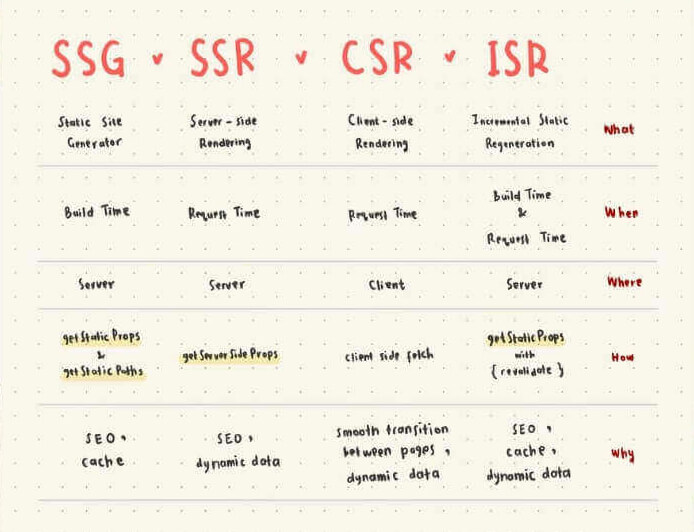 SSG SSR CSR ISR
Static Site Generator
Server-side Rendering
Client-side Rendering
Incremental Static Regeneration
What
Build Time
Request Time
Request Time
Build Time & Request Time
When
Server
Server
Client
Server
Where
getStaticProps & getStaticPaths
getServerSideProps
client side fetch
getStaticProps with { revalidate }
How
SEO, cache
SEO, dynamic data
smooth transition between pages, dynamic data
SEO, cache, dynamic data
Why